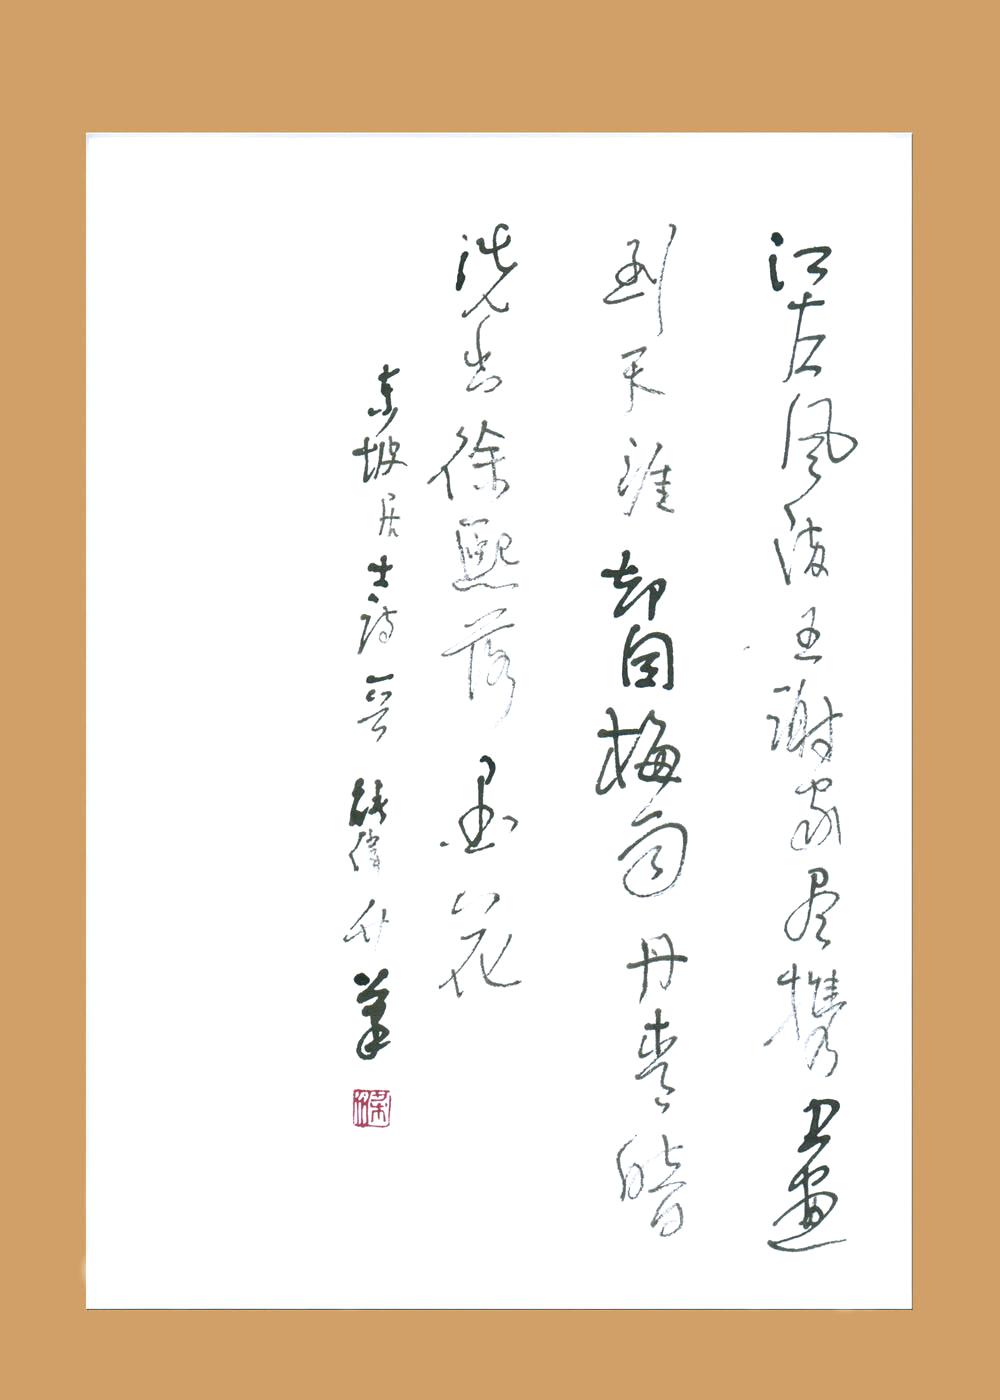 江左风流王谢家尽携书画
到天涯却因梅雨丹青暗
洗出徐熙落墨花
东坡居士诗一首